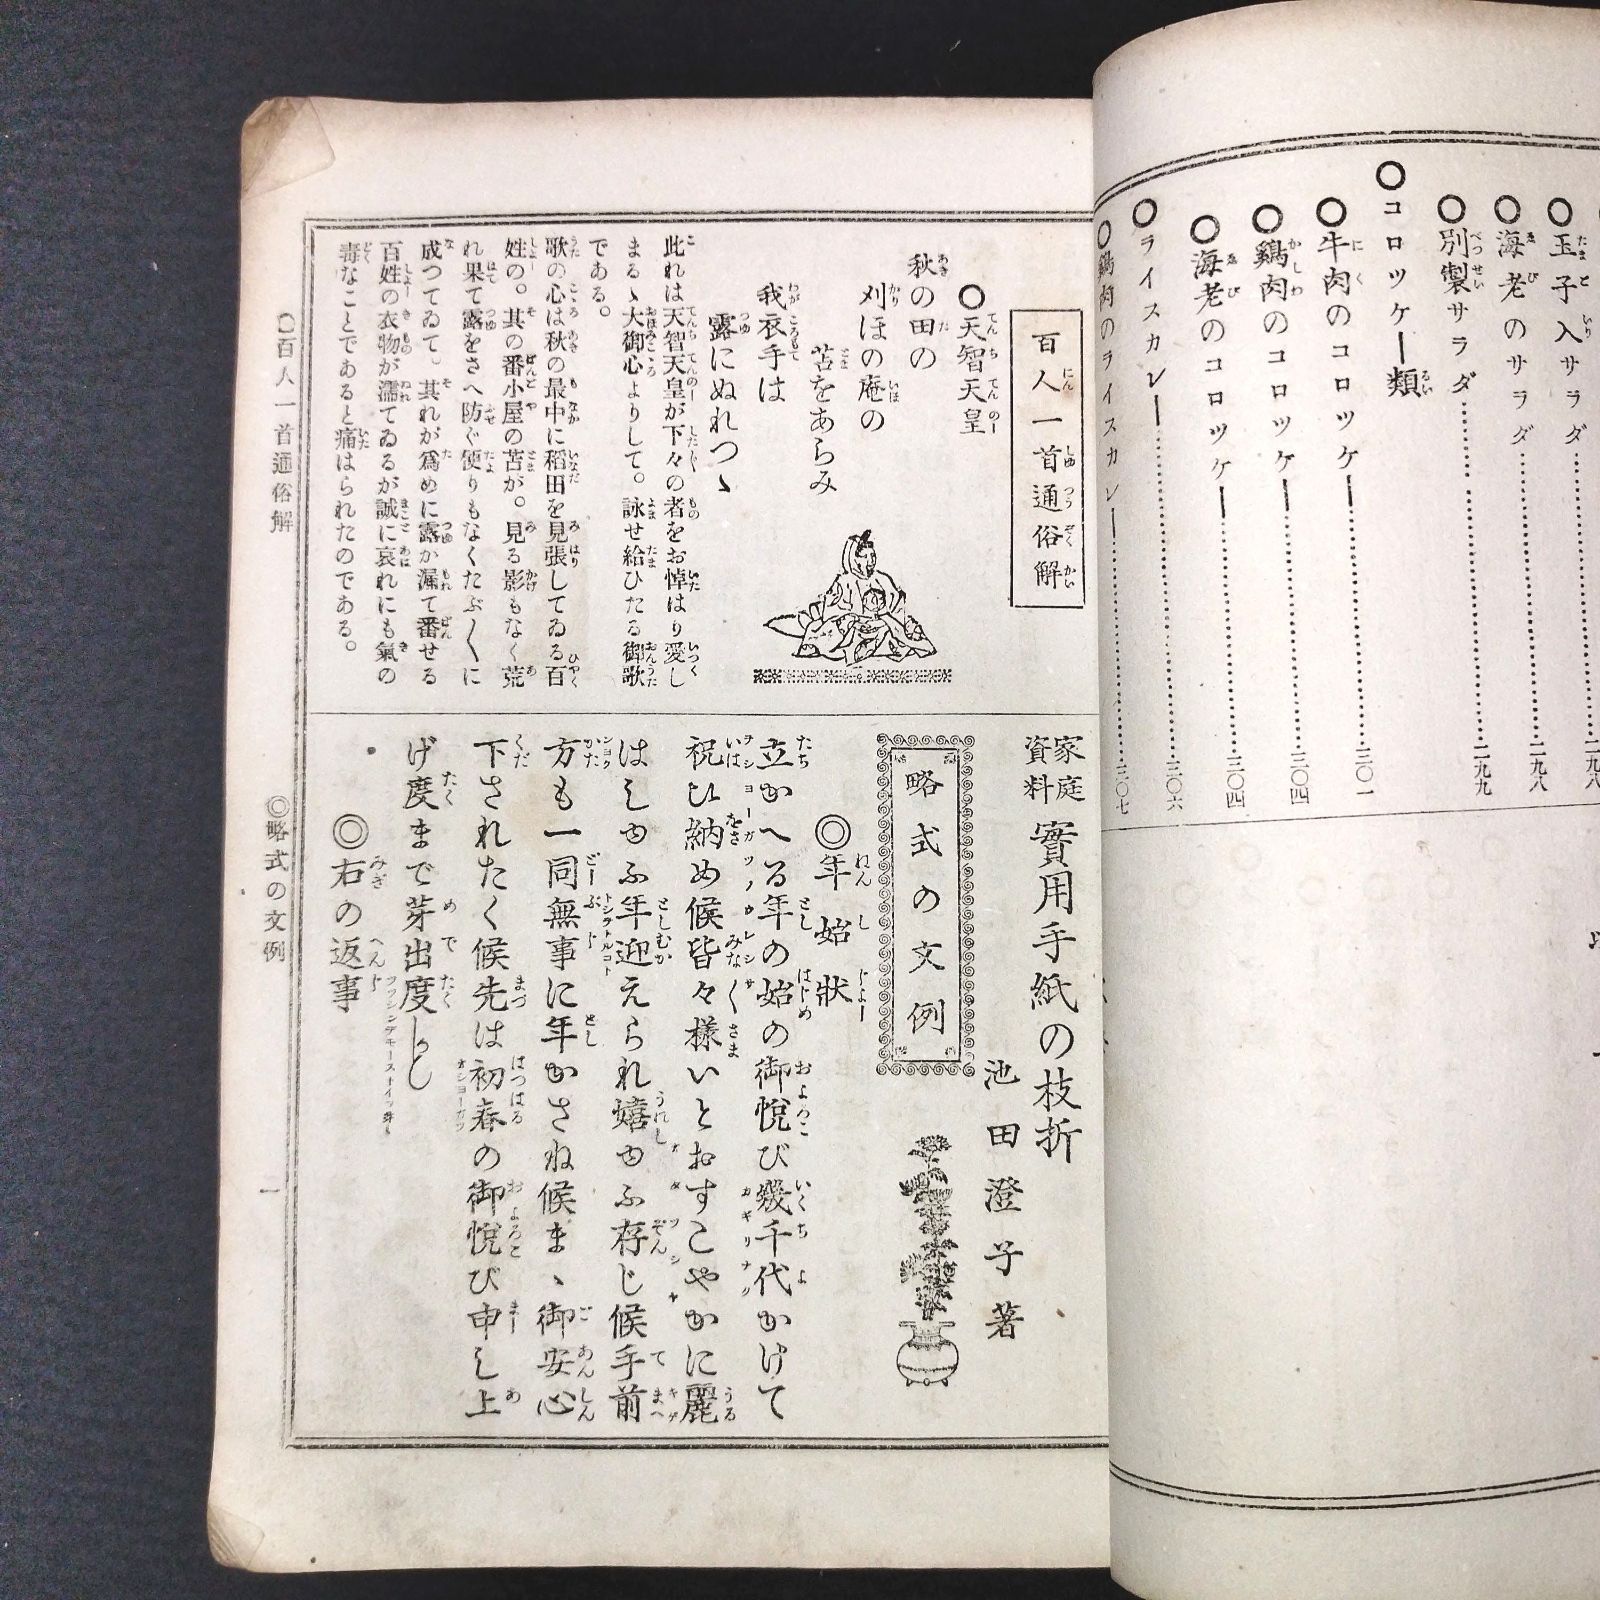 玉子入サラダ……二九八
海老のサラダ……二九八
別製サラダ……二九九
〇コロツケー類
〇牛肉のコロツケー……三〇一
〇鷄肉のコロツケー……三〇四
〇海老のコロツケー……三〇四
〇ライスカレー……三〇六
〇鷄肉のライスカレー……三〇七
百人一首通俗解
〇天智天皇
秋の田の
刈ほの庵の
苫をあらみ
我衣手は
露にぬれつゝ
此れは天智天皇が下々の者をお悼はり愛し
まるゝ大御心よりして。詠せ給ひたる御歌
である。
歌の心は秋の最中に稻田を見張してゐる百
姓の。其の番小屋の苫が。見る影もなく荒
れ果て露をさへ防ぐ便りもなくたぶ〱に
成つてゐて。其れが爲めに露か漏て番せる
百姓の衣物が濡てゐるが誠に哀れにも氣の
毒なことであると痛はられたのである。
家庭資料 實用手紙の枝折
池田澄子著
略式の文例
◎年始狀
立かへる年の始の御悅び幾千代かけて
祝ひ納め候皆々樣いとおすこやかに麗
はしゆふ年迎えられ嬉ゆふ存じ候手前
方も一同無事に年かさね候まゝ御安心
下されたく候先は初春の御悅び申し上
げ度まで芽出度かしく
◎右の返事
〇百人一首通俗解
◎略式の文例
一